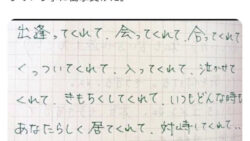 出逢ってくれて、会ってくれて、合ってくれて
くっついてくれて、入ってくれて、泣かせて
くれて、きもちくしてくれて、いつもどんな時も
あなたらしく居てくれて、対峙してくれて...